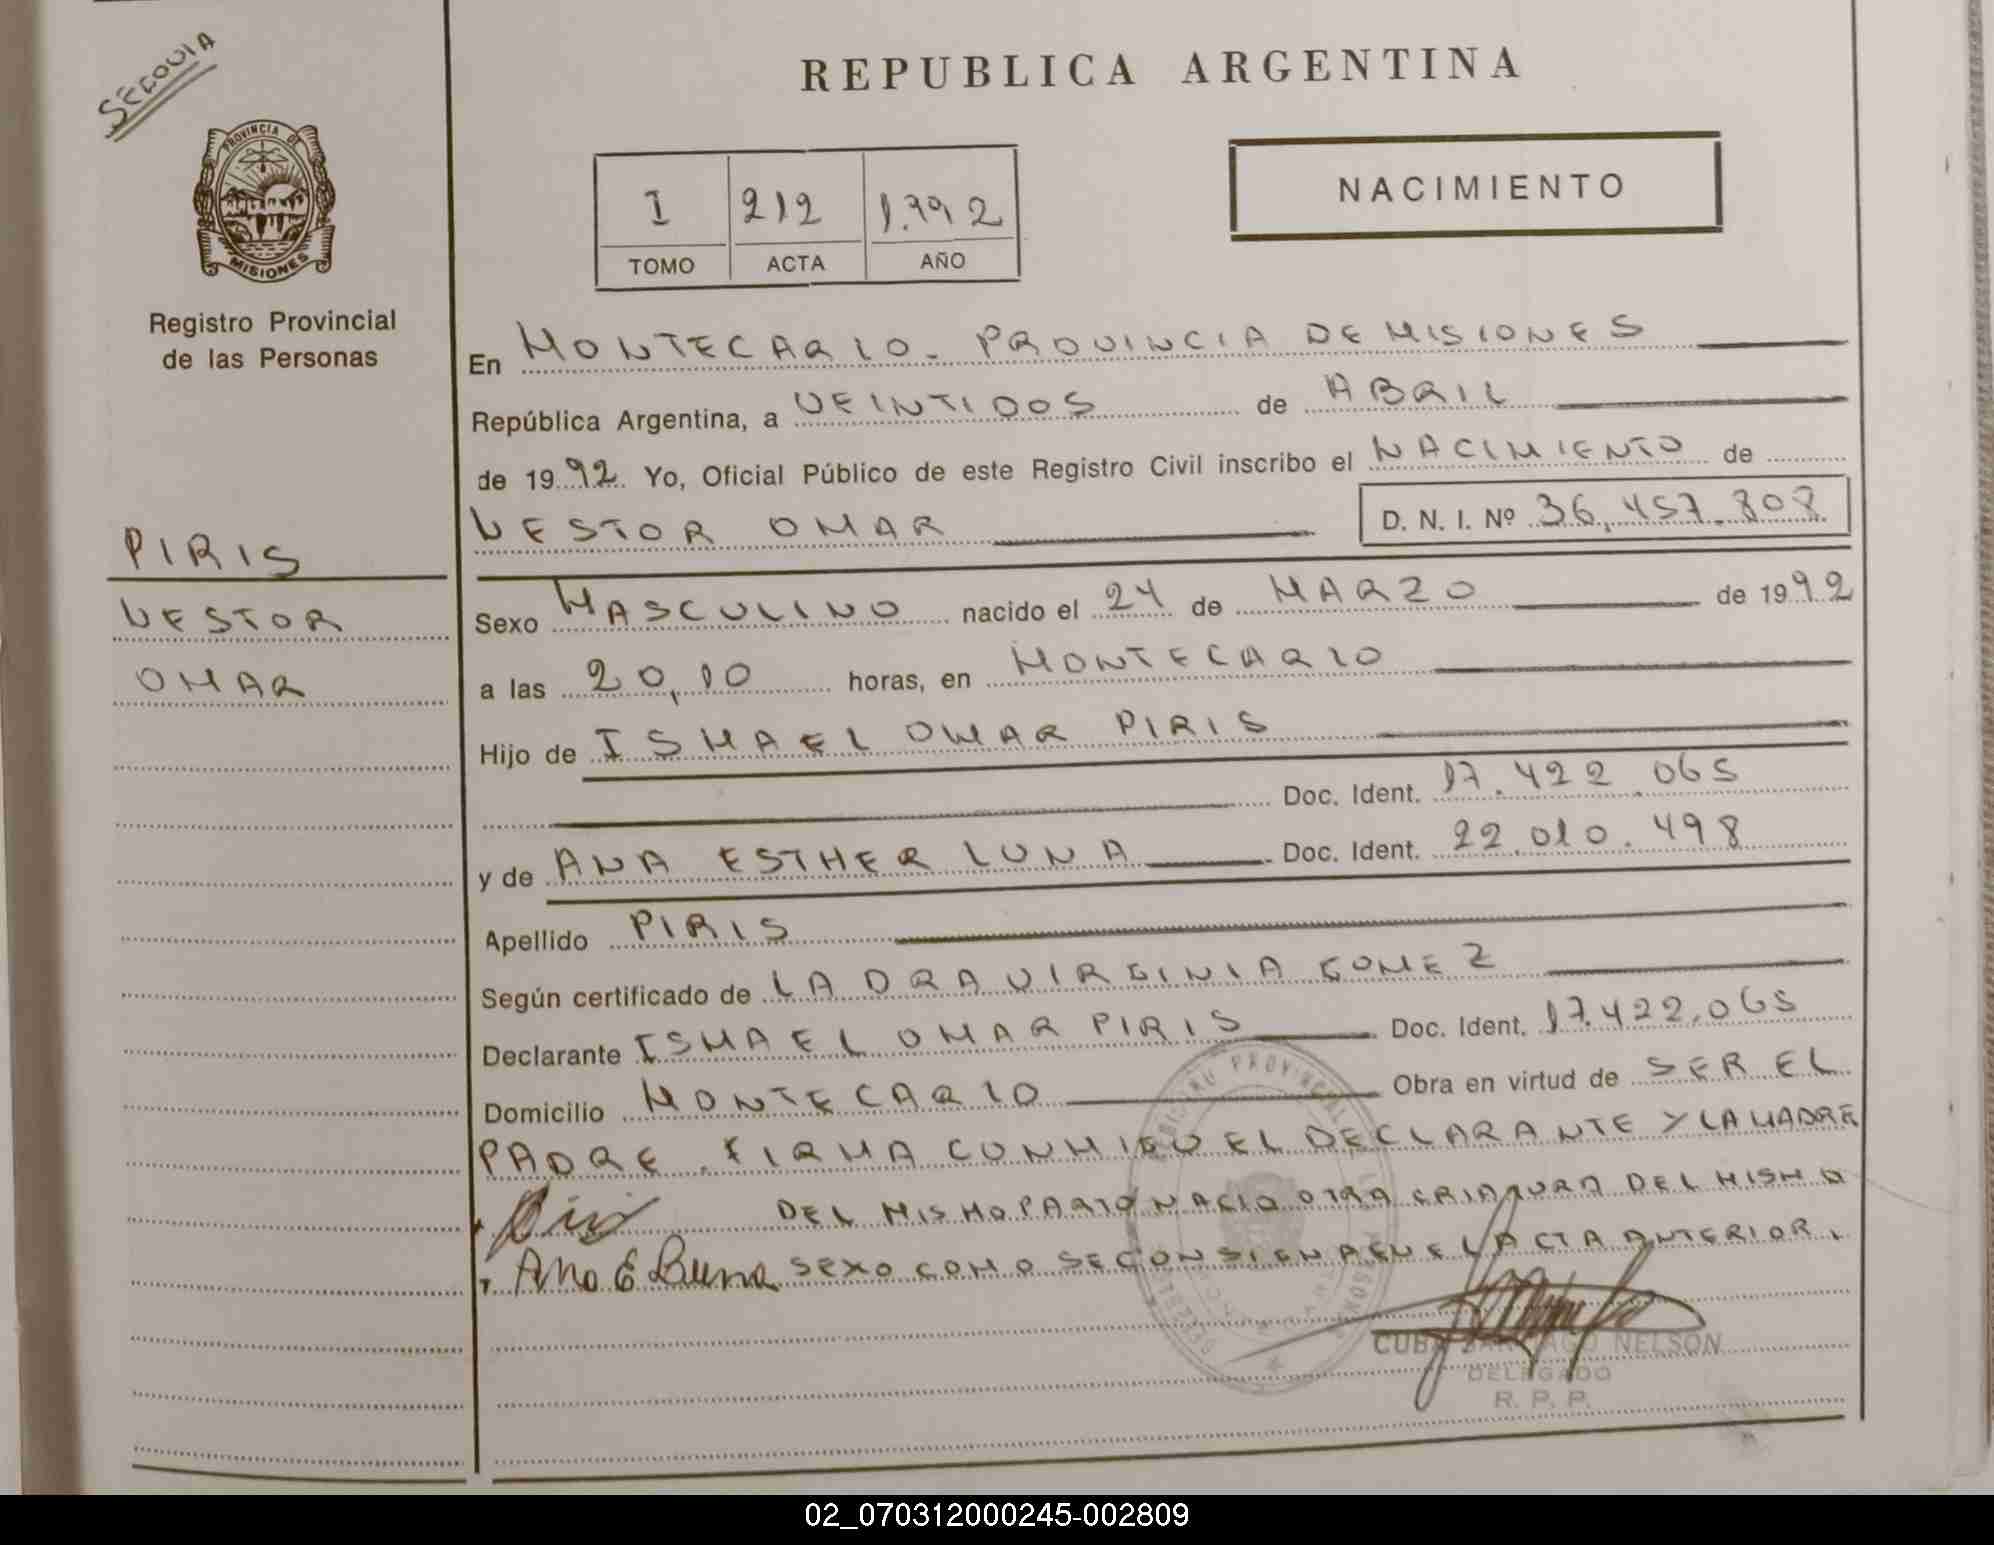 SEGOVIA
PROVINCIA DE
MISIONES
Registro Provincial
de las Personas
PIRIS
NESTOR
OMAR
REPUBLICA ARGENTINA
I 212 1.992
TOMO ACTA AÑO
NACIMIENTO
En MONTECARLO - PROVINCIA DE MISIONES
República Argentina, a VEINTIDOS de ABRIL
de 1992 Yo, Oficial Público de este Registro Civil inscribo el NACIMIENTO de
NESTOR OMAR D. N. I. Nº 36.457.808
Sexo MASCULINO nacido el 24 de MARZO de 1992
a las 20,10 horas, en MONTECARLO
Hijo de ISMAEL OMAR PIRIS
Doc. Ident. 17.422.065
y de ANA ESTHER LUNA Doc. Ident. 22.010.498
Apellido PIRIS
Según certificado de LA DRA VIRGINIA GOMEZ
Declarante ISMAEL OMAR PIRIS Doc. Ident. 17.422.065
Domicilio MONTECARLO Obra en virtud de SER EL
PADRE. FIRMA CONMIGO EL DECLARANTE Y LA MADRE
DEL MISMO PARTO NACIO OTRA CRIATURA DEL MISMO
Ana E SEXO COMO SE CONSIGNA EN EL ACTA ANTERIOR.
NELSON
DELEGADO
R. P. P.
02_070312000245-002809